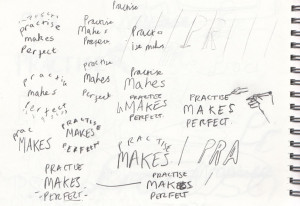 Practise
practise
makes
Perfect
Practise
Makes
Prefect
Practise
Practise
makes
Perfect
Practise
Makes
practise
makes
perfect
PRACTISE
MAKES
PERFECT
PRACTISE
MAKES
PERFECT.
prac
MAKES
PRACTISE
MAKES
PERFECT
PRACTISE
MAKES
PRA
PRACTISE
MAKES
-PERFECT-
PRACTISE
MAKES
PERFECT